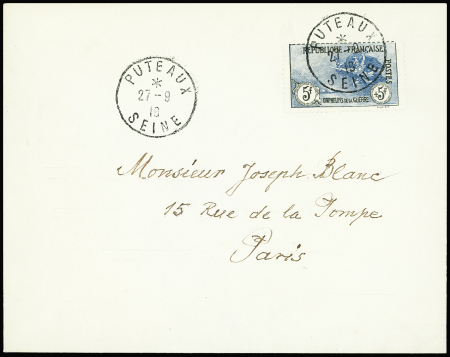 PUTEAUX
*
27-9
18
SEINE
PUTEAUX
*
27
18
SEINE
RÉPUBLIQUE FRANÇAISE
POSTES
5F
ORPHELINS DE LA GUERRE
+5F
Monsieur Joseph Blanc
15 Rue de la Pompe
Paris